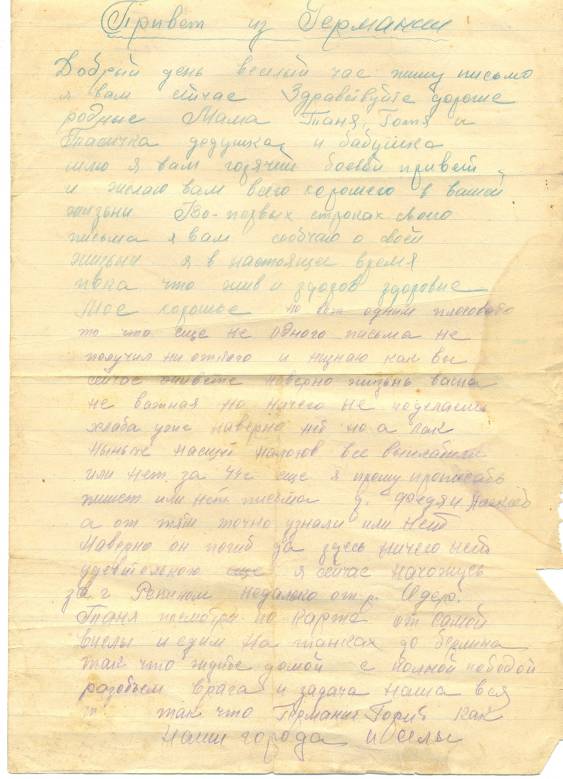 Привет из Германии
Добрый день веселый час пишу письмо
я вам сичас Здравствуйте дорогие
родные Мама Таня, Готя и
Тасичка дедушка и бабушка
шлю я вам горячий боевой привет
и желаю вам всего хорошего в вашей
жизьни Во-первых строках своего
письма я вам сообчаю о своей
жизьни я в настоящие время
пока что жив и здоров здоровие
Мое хорошое но вот одним плоховато
то что еще не одного письма не
получил ни от кого и низнаю как вы
сичас живете наверно жизьнь ваша
не важная но ничего не поделаешь
хлеба уже наверно нет но а как
ныньче насщет налогов все выплатили
или нет за 44г еще я прошу прописать
пишет или нет письма
а от точно узнали или нет
наверно он погиб да здесь ничего нет
удевительною я сичас нахожусь
за г недалеко от р. Одер.
Таня посмотри по карте от самой
Вислы и едим на танках до берлина
так что ждите домой с полной победой
разобьем врага и задача наша вся
так что Германие Горит как
наши города и селы